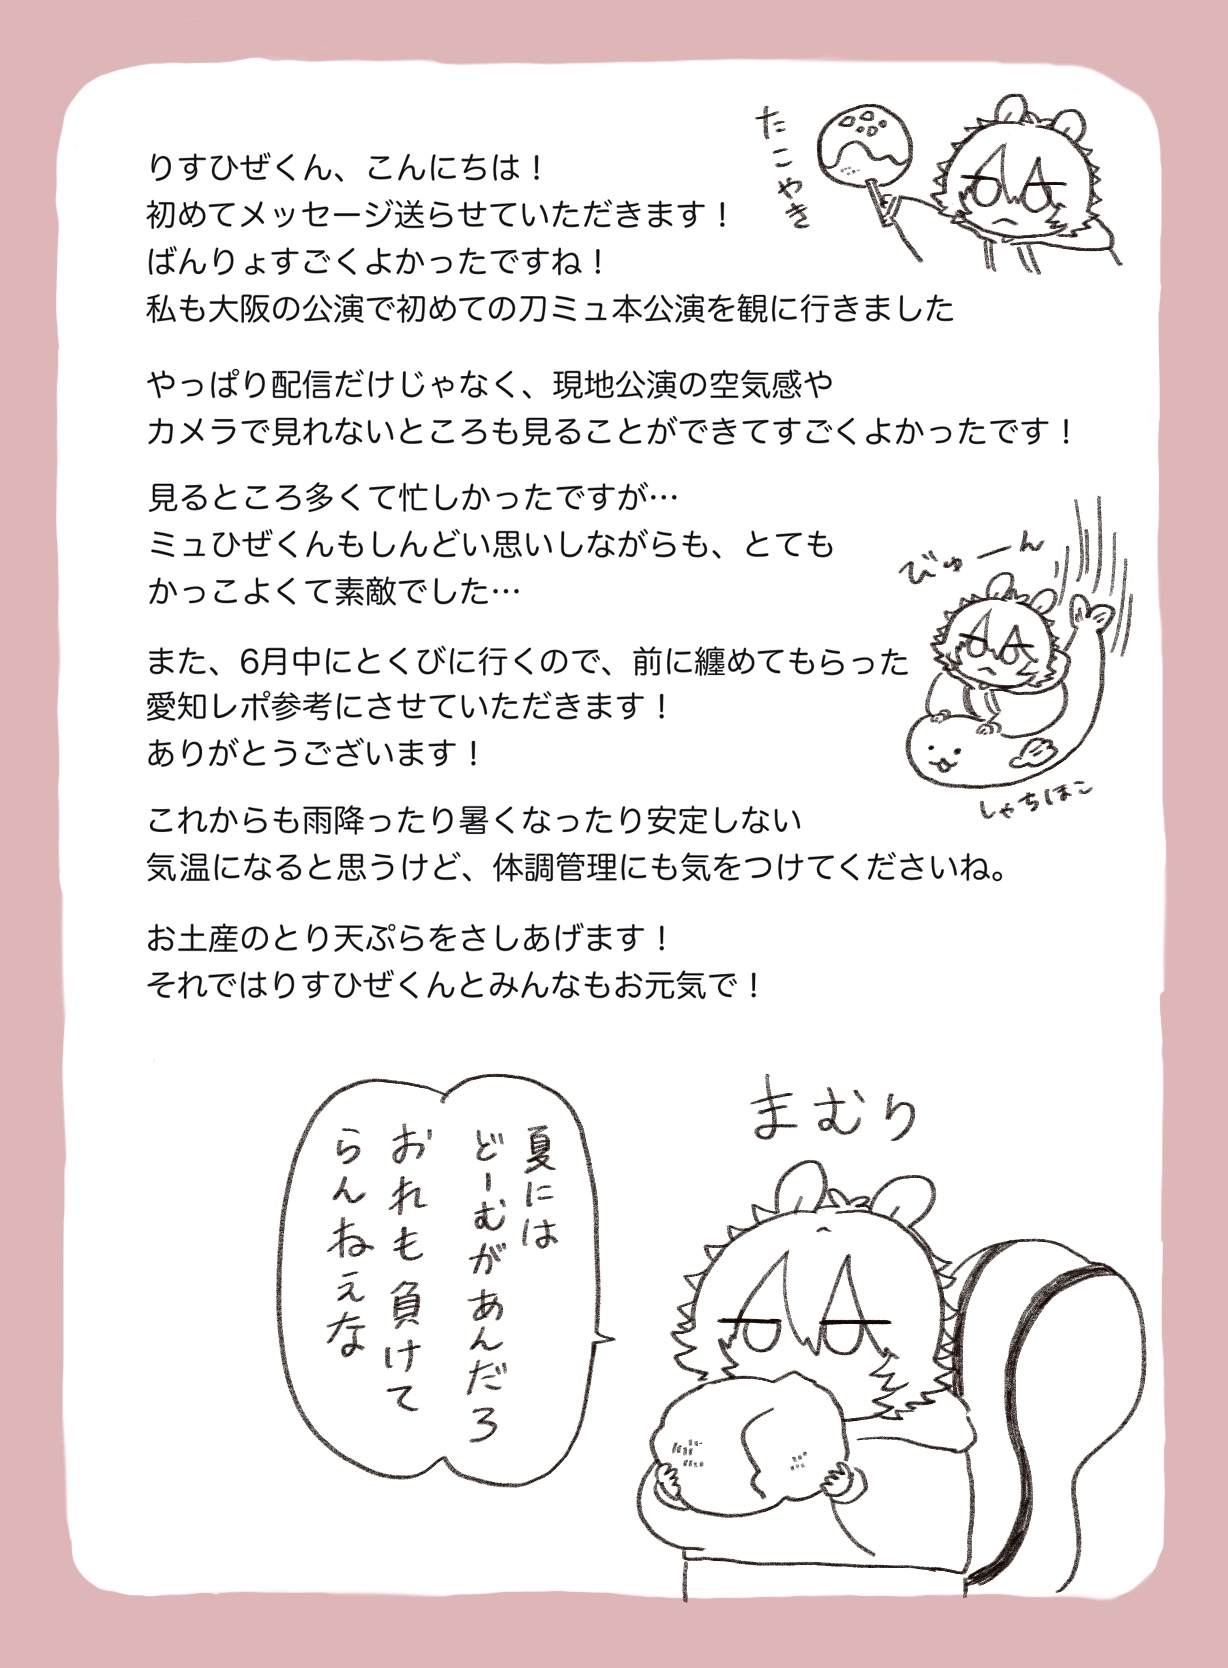 りすひぜくん、こんにちは！
初めてメッセージ送らせていただきます！
ばんりょすごくよかったですね！
私も大阪の公演で初めての刀ミュ本公演を観に行きました
たこやき
やっぱり配信だけじゃなく、現地公演の空気感や
カメラで見れないところも見ることができてすごくよかったです！
見るところ多くて忙しかったですが…
ミュひぜくんもしんどい思いしながらも、とても
かっこよくて素敵でした…
びゅーん
また、6月中にとくびに行くので、前に纏めてもらった
愛知レポ参考にさせていただきます！
ありがとうございます！
しゃちほこ
これからも雨降ったり暑くなったり安定しない
気温になると思うけど、体調管理にも気をつけてくださいね。
お土産のとり天ぷらをさしあげます！
それではりすひぜくんとみんなもお元気で！
まむり
夏には
どーむがあんだろ
おれも負けて
らんねぇな